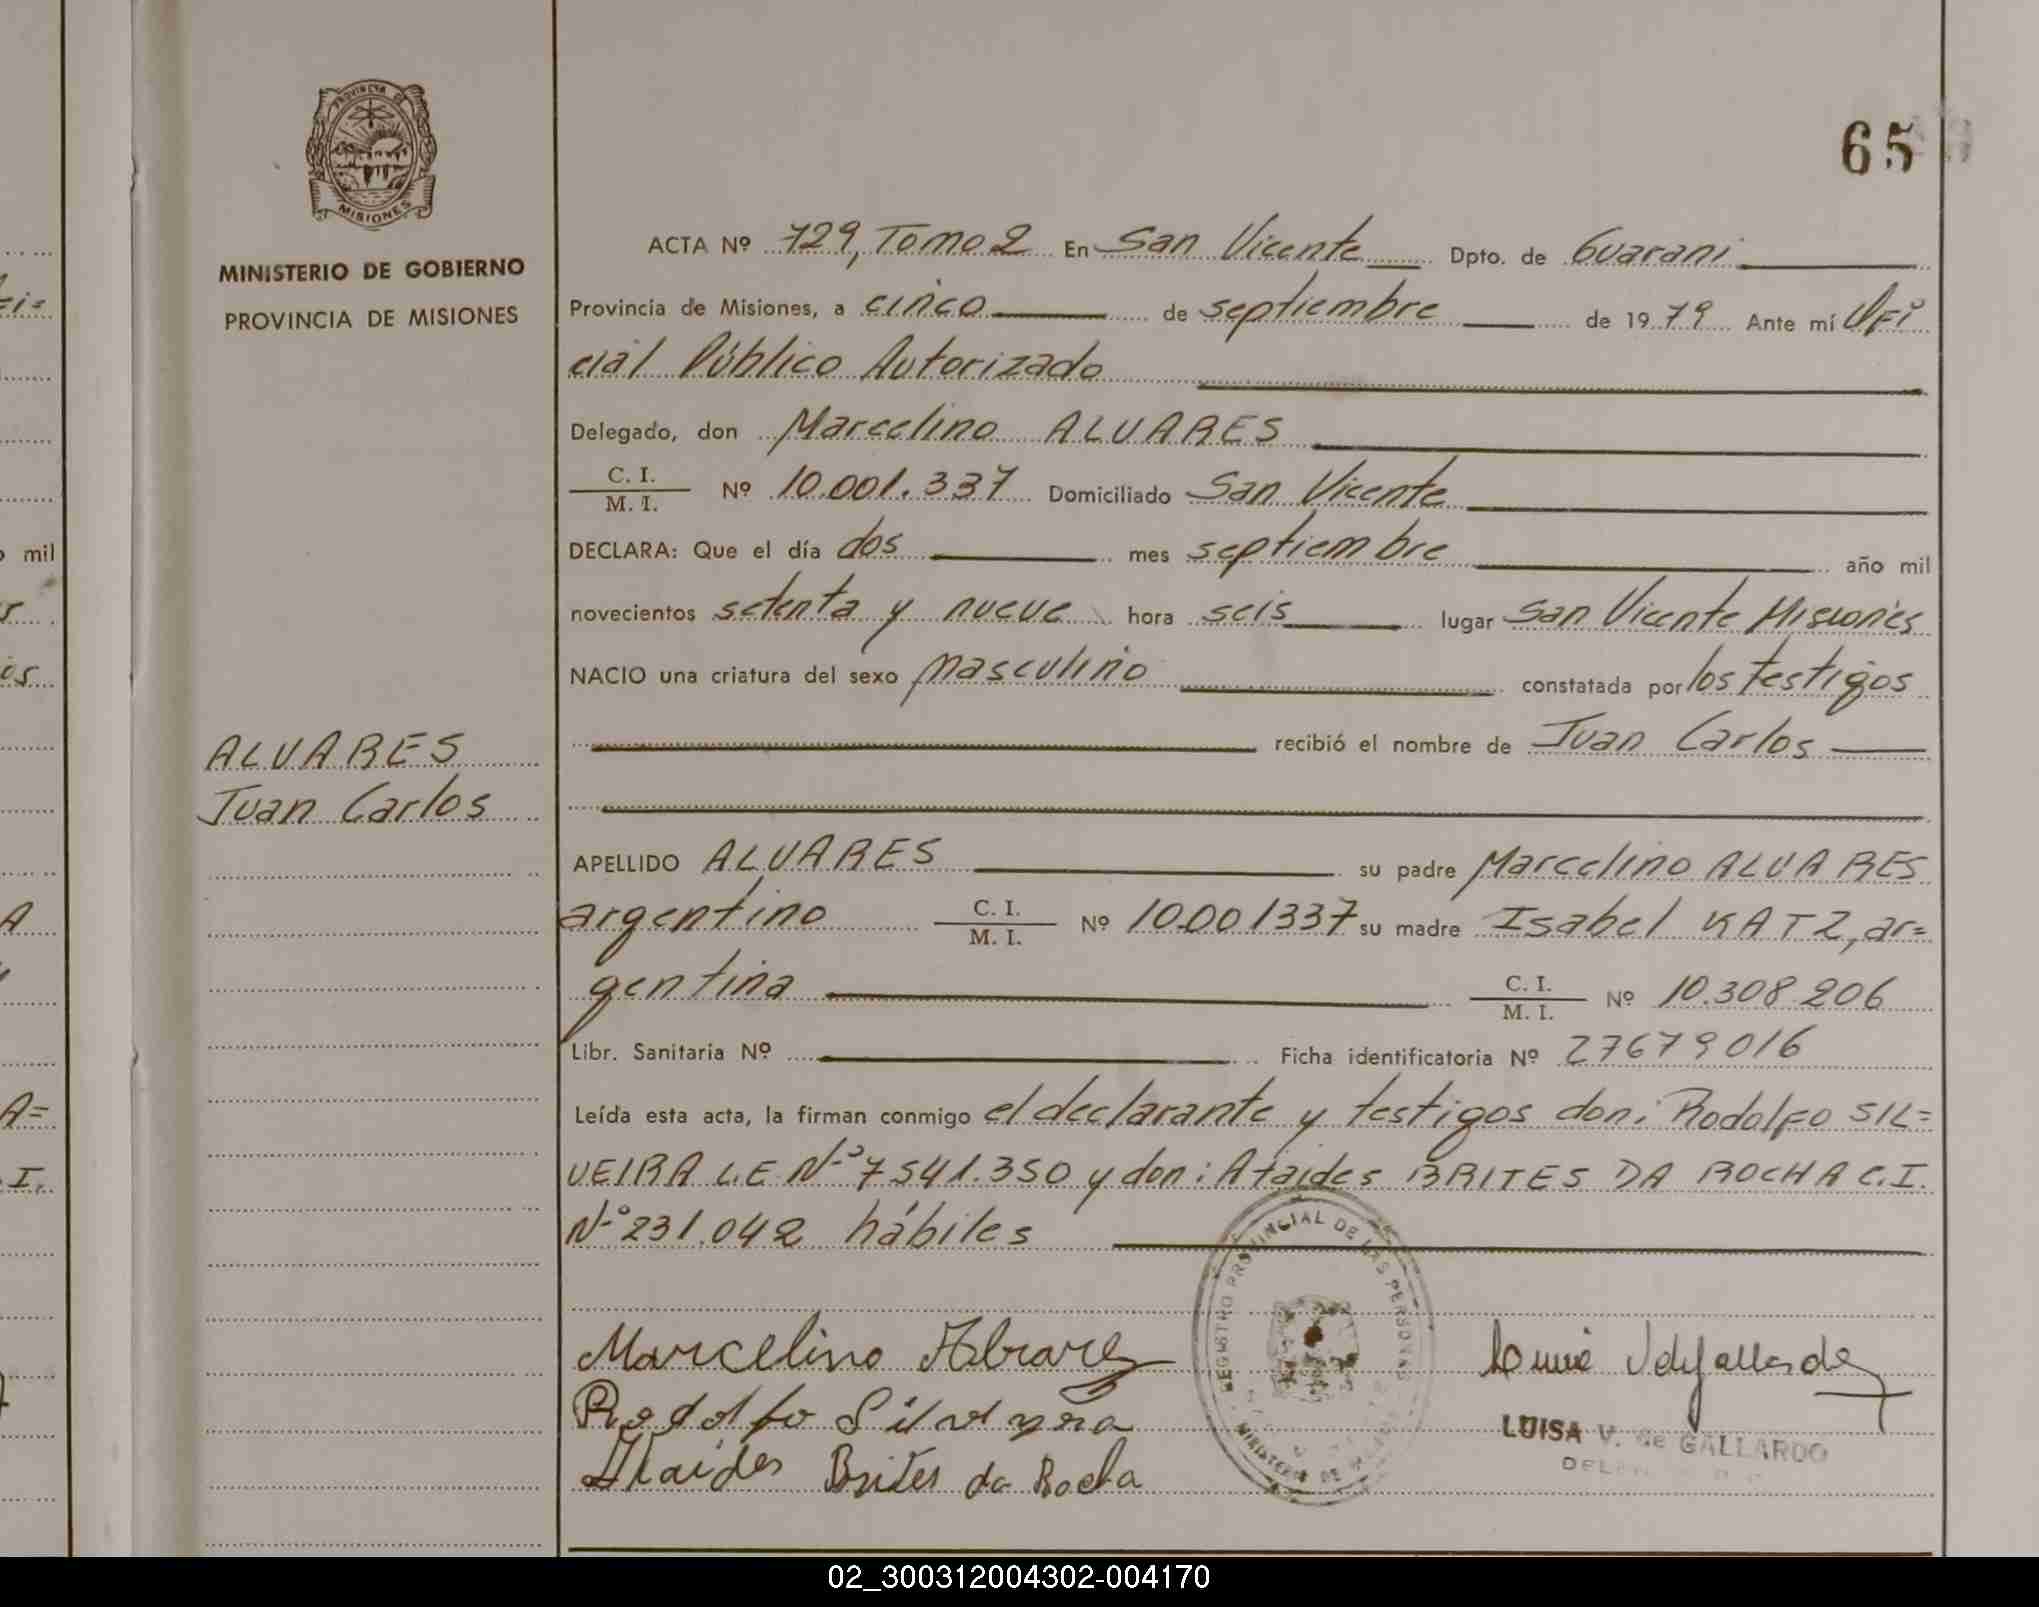 PROVINCIA DE
MISIONES
MINISTERIO DE GOBIERNO
PROVINCIA DE MISIONES
65
ACTA Nº 729, Tomo 2 En San Vicente Dpto. de Guarani
Provincia de Misiones, a cinco de septiembre de 1979 Ante mí Ofi
cial Público Autorizado
Delegado, don Marcelino ALVARES
C. I.
M. I. Nº 10.001.337 Domiciliado San Vicente
DECLARA: Que el día dos mes septiembre año mil
novecientos setenta y nueve hora seis lugar San Vicente Misiones
NACIO una criatura del sexo masculino constatada por los testigos
recibió el nombre de Juan Carlos
ALVARES
Juan Carlos
APELLIDO ALVARES su padre Marcelino ALVARES
argentino C. I. M. I. Nº 10.001337 su madre Isabel KATZ, ar=
gentina C. I. M. I. Nº 10.308.206
Libr. Sanitaria Nº Ficha identificatoria Nº 27679016
Leída esta acta, la firman conmigo el declarante y testigos don: Rodolfo SIL=
VEIRA L.E. Nº 7541.350 y don: Ataides BRITES DA ROCHA C.I.
Nº 231.042 hábiles
REGISTRO PROVINCIAL DE LAS PERSONAS
MINISTERIO DE
Marcelino Alvarez
Rodolfo Silveyra
Ataides Brites da Rocha
LUISA V. de GALLARDO
mil
A=
I.
02_300312004302-004170